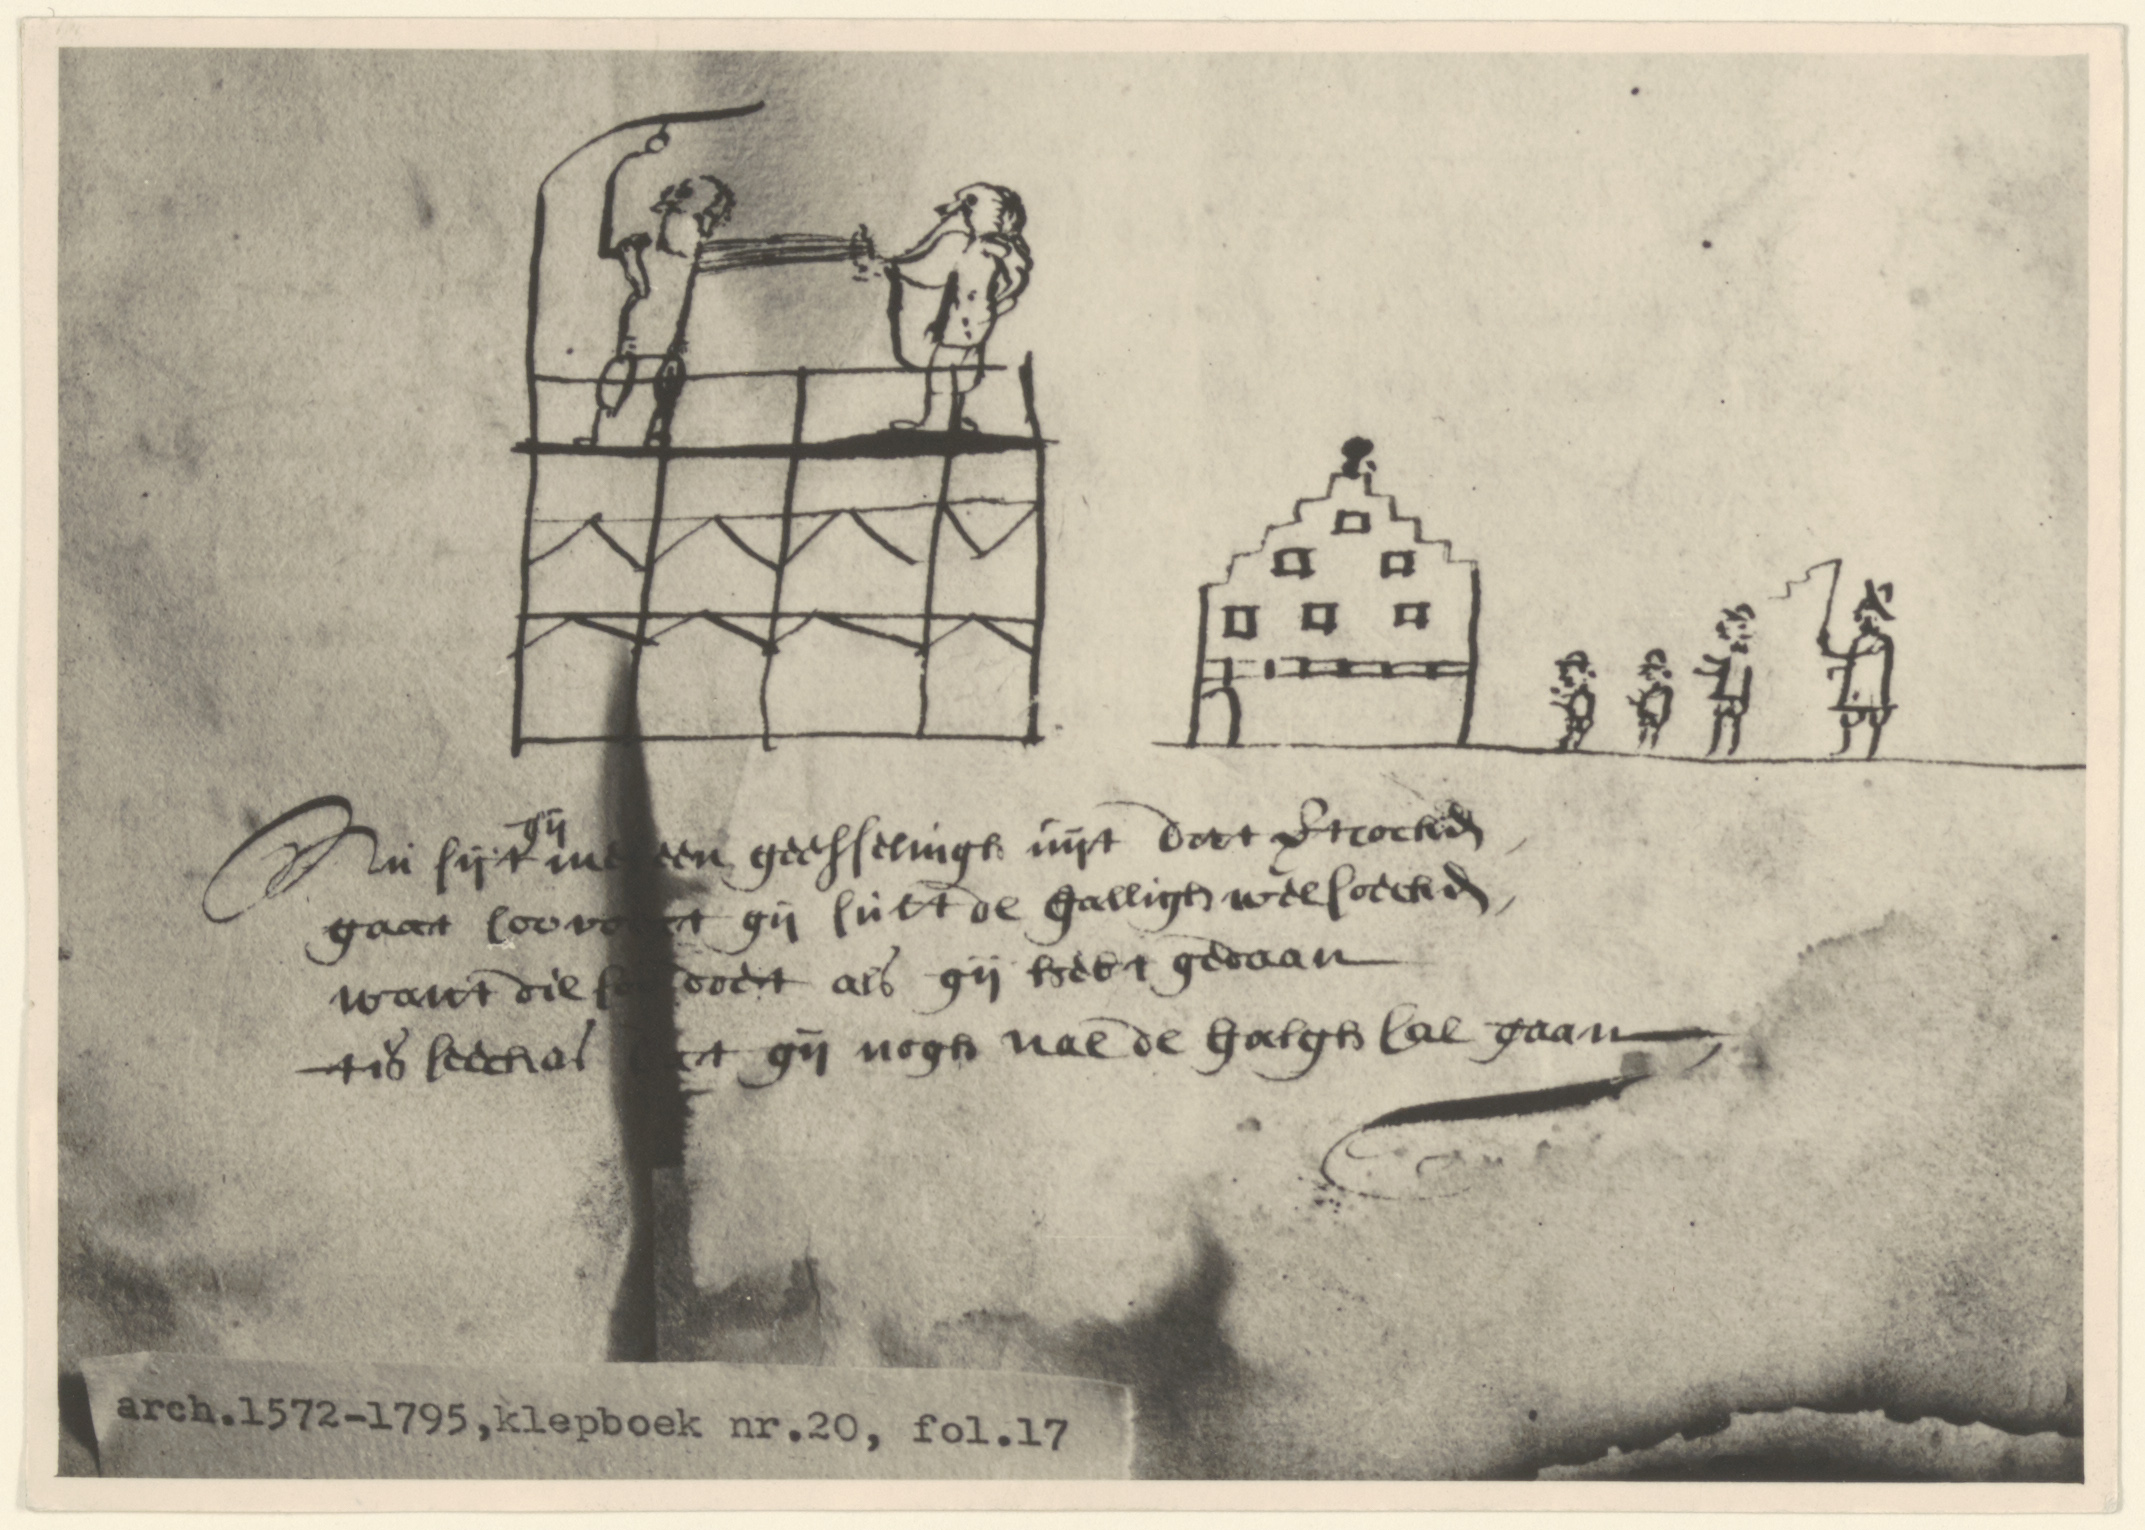 Nu sijt gij met een geesselingh uijt Dort vertrocken,
gaat soo voort gij sult de galligh wel soecken,
want die soo doet als gij hebt gedaan
tis seecker dat gij nogh nae de galgh sal gaan
arch.1572-1795,klepboek nr.20, fol.17